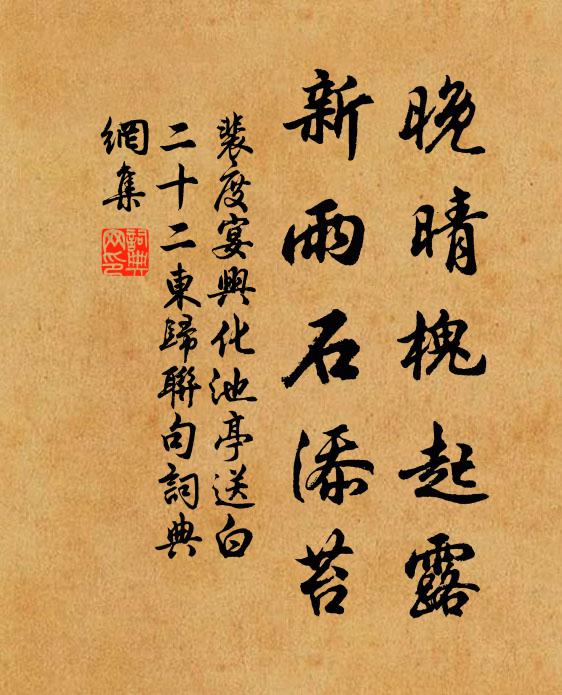 晚晴槐起露
新雨石添苔
裴度宴興化池亭送白
二十二東歸聯句詞典
網集
詞典
网印